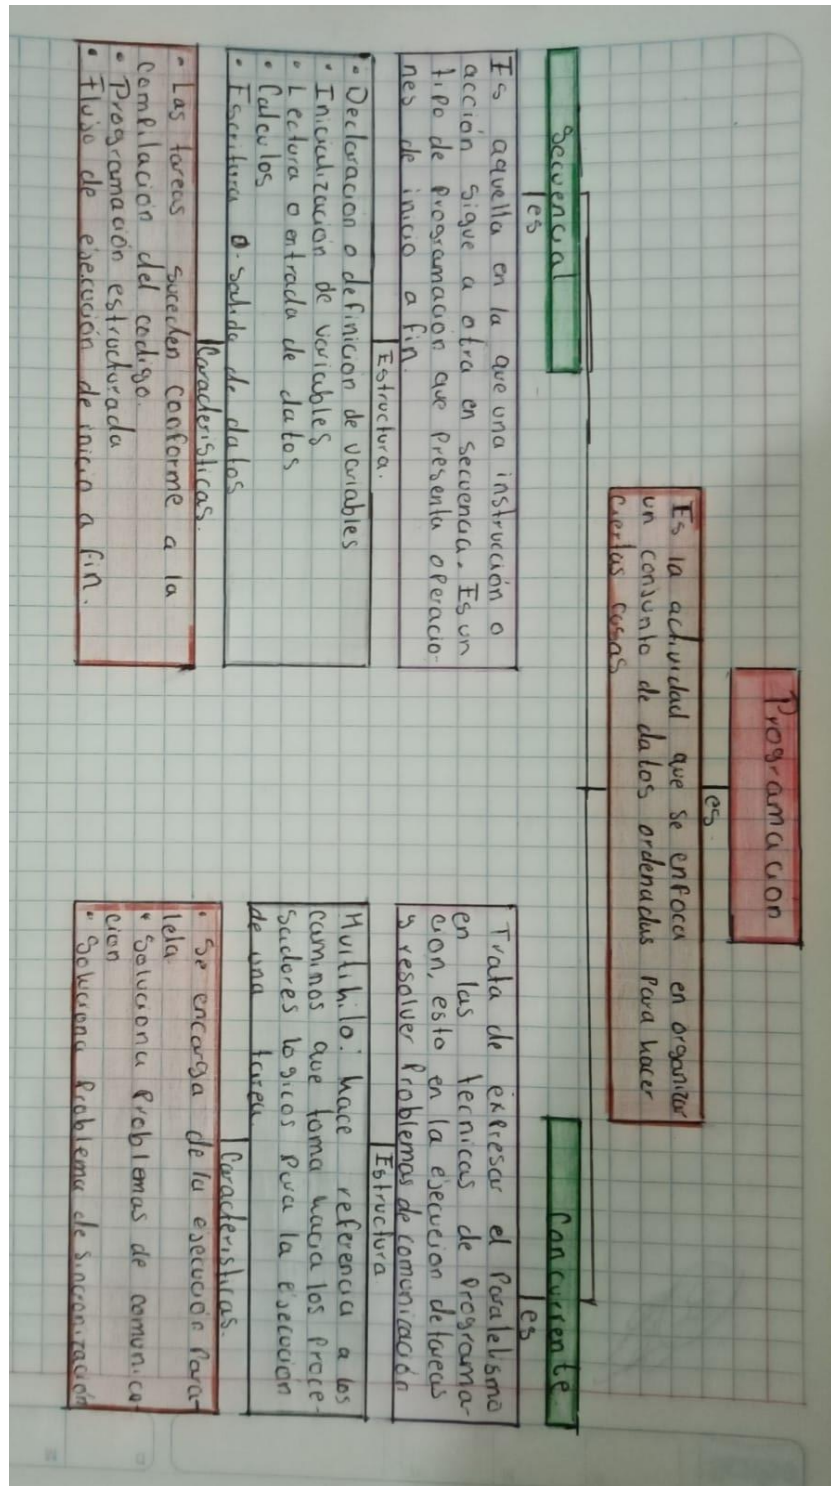 Programacion
es
Es la actividad que se enfoca en organizar
un conjunto de datos ordenados para hacer
ciertas cosas
Secuencial
es
Es aquella en la que una instrucción o
acción sigue a otra en secuencia. Es un
tipo de programación que presenta operacio-
nes de inicio a fin.
Estructura.
• Declaracion o definicion de variables
• Inicialización de variables
• Lectura o entrada de datos
• Calculos
• Escritura o salida de datos
Caracteristicas.
• Las tareas suceden conforme a la
compilación del codigo.
• Programación estructurada
• Flujo de ejecución de inicio a fin.
Concurrente.
es
Trata de expresar el paralelismo
en las tecnicas de programa-
cion, esto en la ejecucion de tareas
y resolver problemas de comunicación
Estructura
Multihilo: hace referencia a los
caminos que toma hacia los proce-
sadores logicos para la ejecucion
de una tarea
Caracteristicas.
• Se encarga de la ejecución para-
lela
• Soluciona problemas de comunica
cion
• Soluciona problema de sincronización